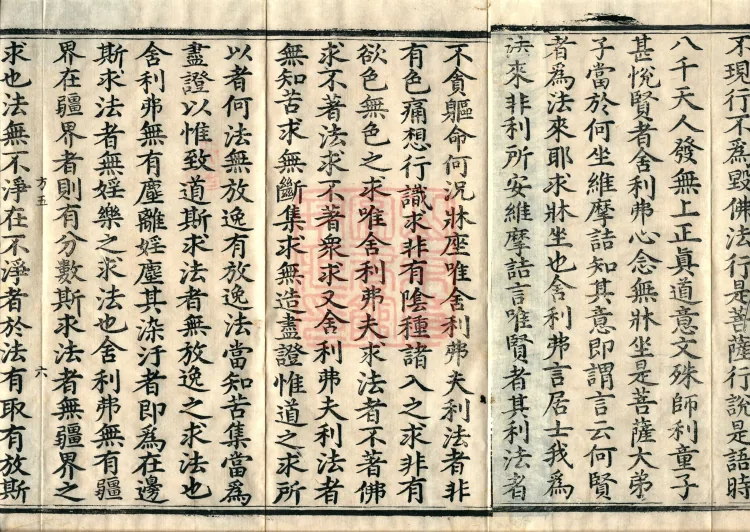 不現行不為毀佛法行是菩薩行說是語時
八千天人發無上正真道意文殊師利童子
甚悅賢者舍利弗心念無牀坐是菩薩大弟
子當於何坐維摩詰知其意即謂言云何賢
者為法來耶求牀坐也舍利弗言居士我為
法來非利所安維摩詰言唯賢者其利法者
不貪軀命何況牀座唯舍利弗夫利法者非
有色痛想行識求非有陰種諸入之求非有
欲色無色之求唯舍利弗夫求法者不著佛
求不著法求不著衆求又舍利弗夫利法者
無知苦求無斷集求無造盡證惟道之求所
以者何法無放逸有放逸法當知苦集當為
盡證以惟致道斯求法者無放逸之求法也
舍利弗無有塵離婬塵其染汙者即為在邊
斯求法者無婬樂之求法也舍利弗無有疆
界在疆界者則有分數斯求法者無疆界之
方五
六
求也法無不淨在不淨者於法有取有放斯